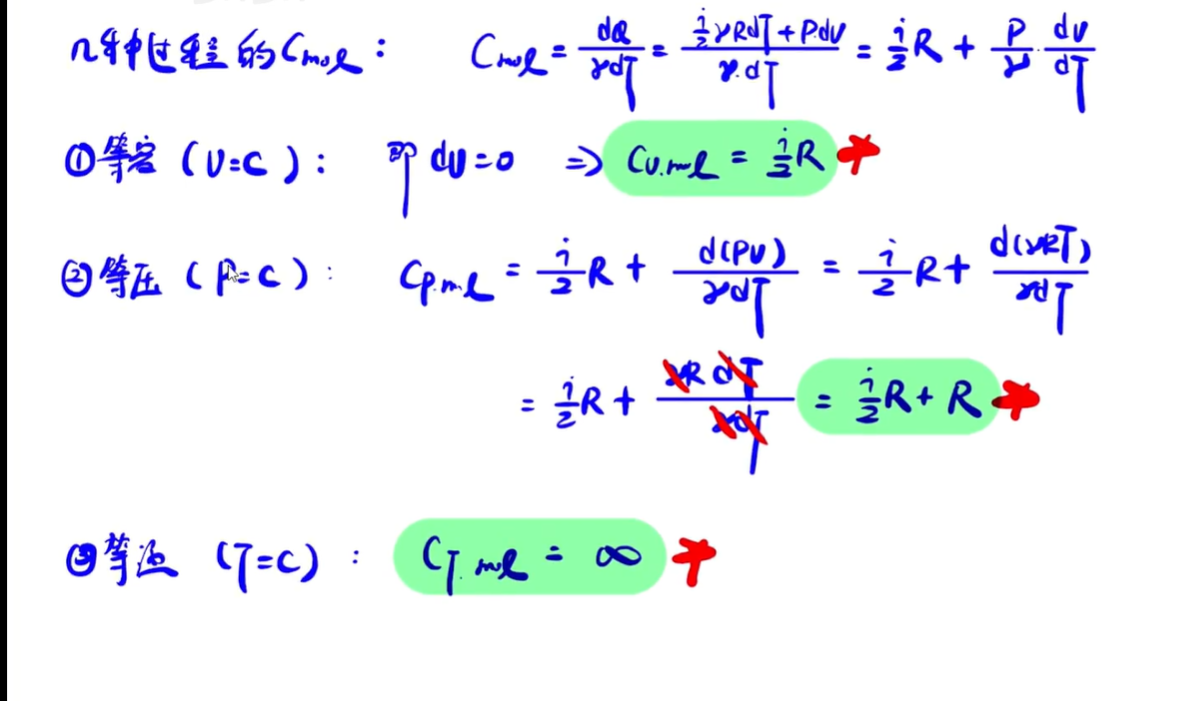 几种过程的Cmol： Cmol = dQ/γdT = (i/2 γRdT + PdV)/γ·dT = i/2 R + P/γ · dV/dT
①等容（V=C）： 即 dV=0 => Cv.mol = i/2 R
②等压（P=C）： Cp.mol = i/2 R + d(PV)/γdT = i/2 R + d(γRT)/γdT
= i/2 R + γR dT/γdT = i/2 R + R
③等温（T=C）： CT.mol = ∞